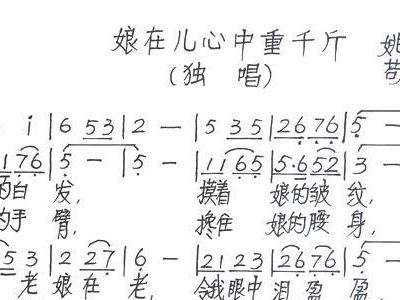 娘在儿心中重千斤 姚
(独 唱)
i | 6 53 | 2 - | 5 35 | 26 76 | 5 -
176 | 5 - | 5 - | 11 65 | 5·6 52 | 3 -
的白 发, 摸着 娘的皱 纹,
的手 臂, 搀住 娘的腰 身,
5 3 | 2 27 | 6 - | 21 23 | 26 76 | 5 -
老 娘在 老, 令我眼中 泪 盈 盈,